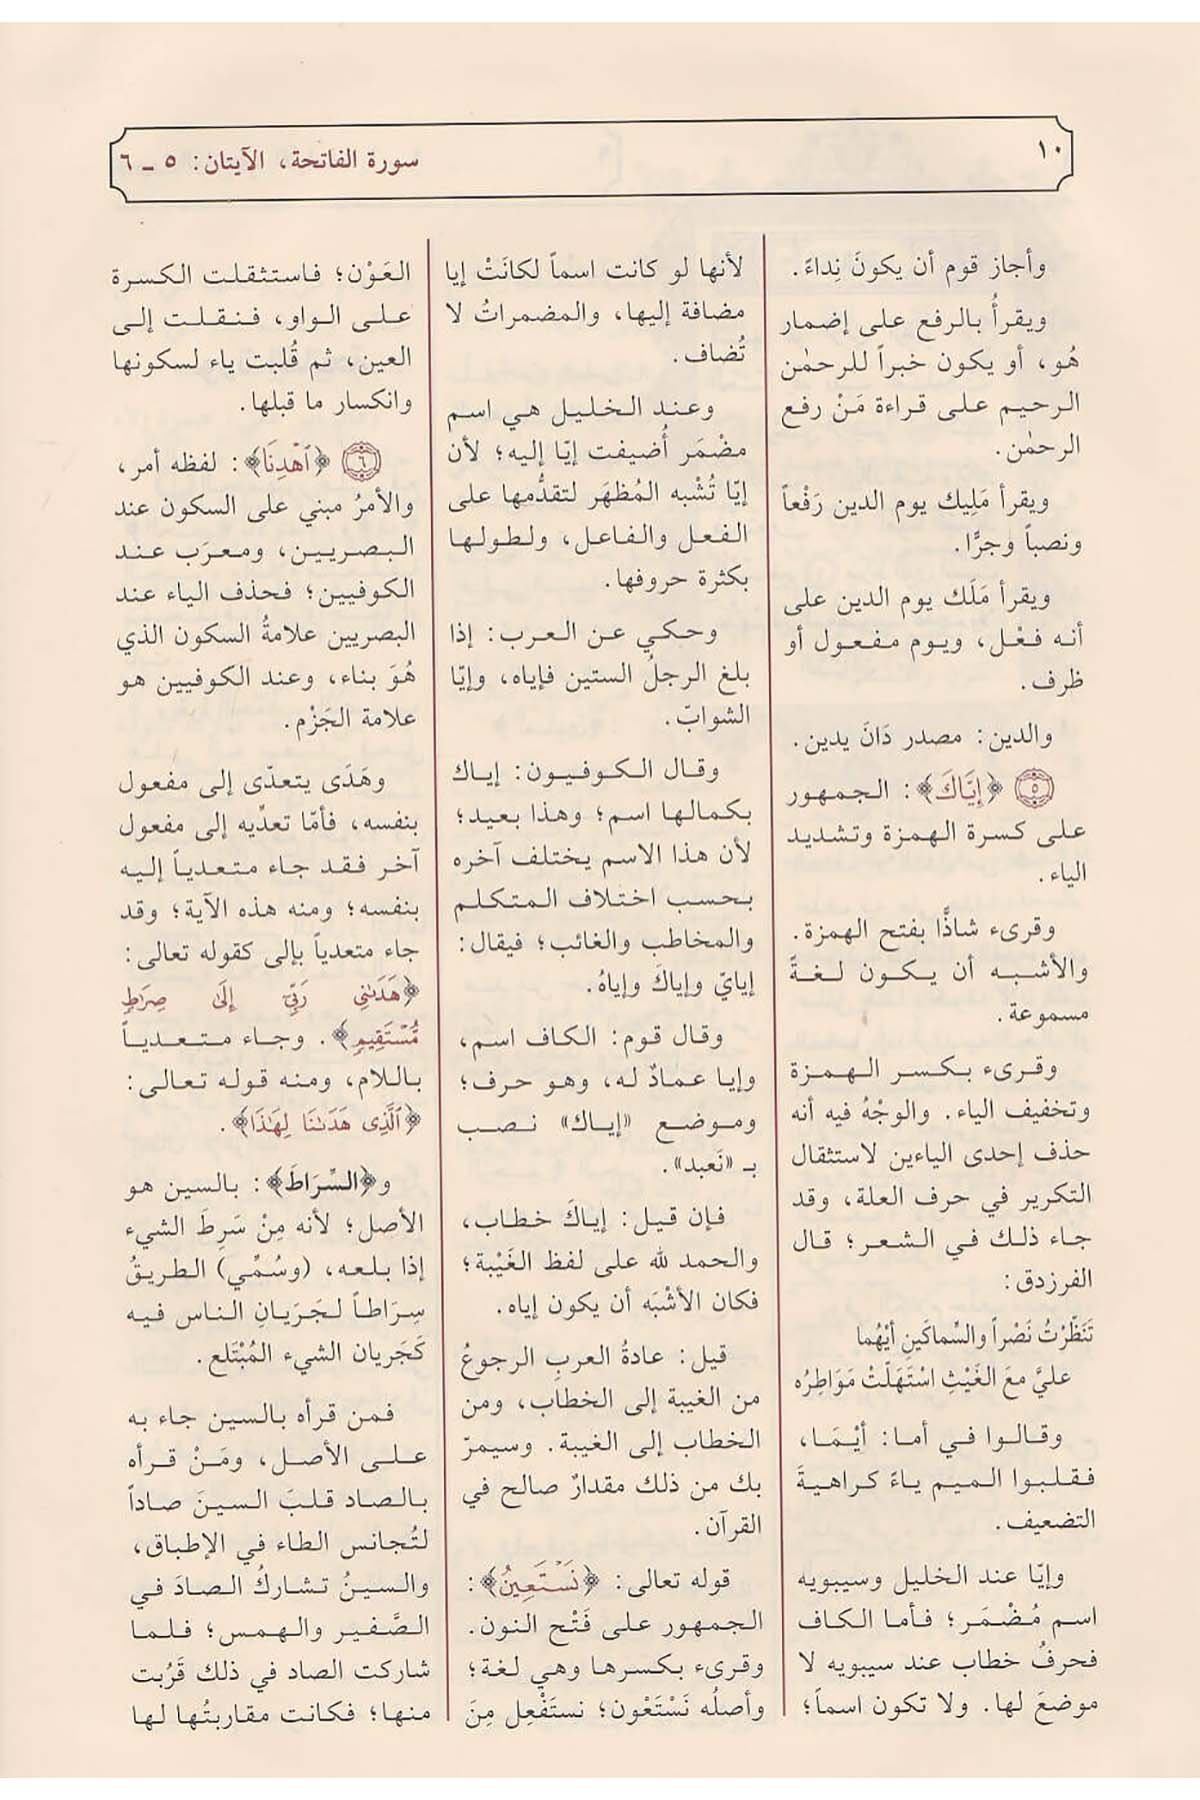 ١٠
سورة الفاتحة، الآيتان: ٥ ـ ٦
وأجاز قوم أن يكونَ نِداءً.
ويقرأُ بالرفع على إضمار
هُو، أو يكون خبراً للرحمٰن
الرحيم على قراءة مَنْ رفع
الرحمٰن.
ويقرأ مَلِيك يوم الدين رَفْعاً
ونصباً وجرًّا.
ويقرأ مَلَك يوم الدين على
أنه فعْل، ويوم مفعول أو
ظرف.
والدين: مصدر دَانَ يدين.
٥ ﴿إِيَّاكَ﴾: الجمهور
على كسرة الهمزة وتشديد
الياء.
وقرىء شاذًّا بفتح الهمزة.
والأشبه أن يكون لغةً
مسموعة.
وقرىء بكسر الهمزة
وتخفيف الياء. والوجْهُ فيه أنه
حذف إحدى الياءين لاستثقال
التكرير في حرف العلة، وقد
جاء ذلك في الشعر؛ قال
الفرزدق:
تَنَظَّرْتُ نَصْراً والسِّماكَينِ أيْهُما
عليَّ معَ الغَيْثِ اسْتَهَلَّتْ مَوَاطِرُه
وقالوا في أما: أيْمَا،
فقلبوا الميم ياءً كراهيةَ
التضعيف.
وإيّا عند الخليل وسيبويه
اسم مُضْمَر؛ فأما الكاف
فحرفُ خطاب عند سيبويه لا
موضعَ لها. ولا تكون اسماً؛
لأنها لو كانت اسماً لكانَتْ إيا
مضافة إليها، والمضمراتُ لا
تُضاف.
وعند الخليل هي اسم
مضْمَر أُضيفت إيّا إليه؛ لأن
إيّا تُشْبه المُظهَر لتقدُّمها على
الفعل والفاعل، ولطولها
بكثرة حروفها.
وحكي عن العرب: إذا
بلغ الرجلُ الستين فإياه، وإيّا
الشوابّ.
وقال الكوفيون: إياك
بكمالها اسم؛ وهذا بعيد؛
لأن هذا الاسم يختلف آخره
بحسب اختلاف المتكلم
والمخاطب والغائب؛ فيقال:
إيايَ وإياكَ وإياهُ.
وقال قوم: الكاف اسم،
وإيا عمادٌ له، وهو حرف؛
وموضع «إياك» نصب
بـ «نَعبد».
فإن قيل: إياكَ خطاب،
والحمد لله على لفظ الغَيْبة؛
فكان الأشْبَه أن يكون إياه.
قيل: عادةُ العربِ الرجوعُ
من الغيبة إلى الخطاب، ومن
الخطاب إلى الغيبة. وسيمرّ
بك من ذلك مقدارٌ صالح في
القرآن.
قوله تعالى: ﴿نَسْتَعِينُ﴾:
الجمهور على فَتْح النون.
وقرىء بكسرها وهي لغة؛
وأصلُه نَسْتَعْون؛ نستَفْعِل مِنَ
العَوْن؛ فاستثقلت الكسرة
على الواو، فنقلت إلى
العين، ثم قُلبت ياء لسكونها
وانكسار ما قبلها.
٦ ﴿ٱهْدِنَا﴾: لفظه أمر،
والأمرُ مبني على السكون عند
البصريين، ومعرَب عند
الكوفيين؛ فحذف الياء عند
البصريين علامةُ السكون الذي
هُوَ بناء، وعند الكوفيين هو
علامة الجَزْم.
وهَدَى يتعدّى إلى مفعول
بنفسه، فأمّا تعدِّيه إلى مفعول
آخر فقد جاء متعدياً إليه
بنفسه؛ ومنه هذه الآية؛ وقد
جاء متعدياً بإلى كقوله تعالى:
﴿هَدَىٰنِى رَبِّىٓ إِلَىٰ صِرَٰطٍ
مُّسْتَقِيمٍ﴾. وجاء متعدياً
باللام، ومنه قوله تعالى:
﴿ٱلَّذِى هَدَىٰنَا لِهَٰذَا﴾.
و﴿السِّرَاطَ﴾: بالسين هو
الأصل؛ لأنه مِنْ سَرِطَ الشيء
إذا بلعه، (وسُمِّي) الطريقُ
سِرَاطاً لجَرَيانِ الناس فيه
كَجَريان الشيء المُبْتَلع.
فمن قرأه بالسين جاء به
على الأصل، ومَنْ قرأه
بالصاد قلبَ السينَ صاداً
لتُجانس الطاء في الإطباق،
والسينُ تشاركُ الصادَ في
الصَّفير والهمس؛ فلما
شاركت الصاد في ذلك قَرُبت
منها؛ فكانت مقاربتُها لها